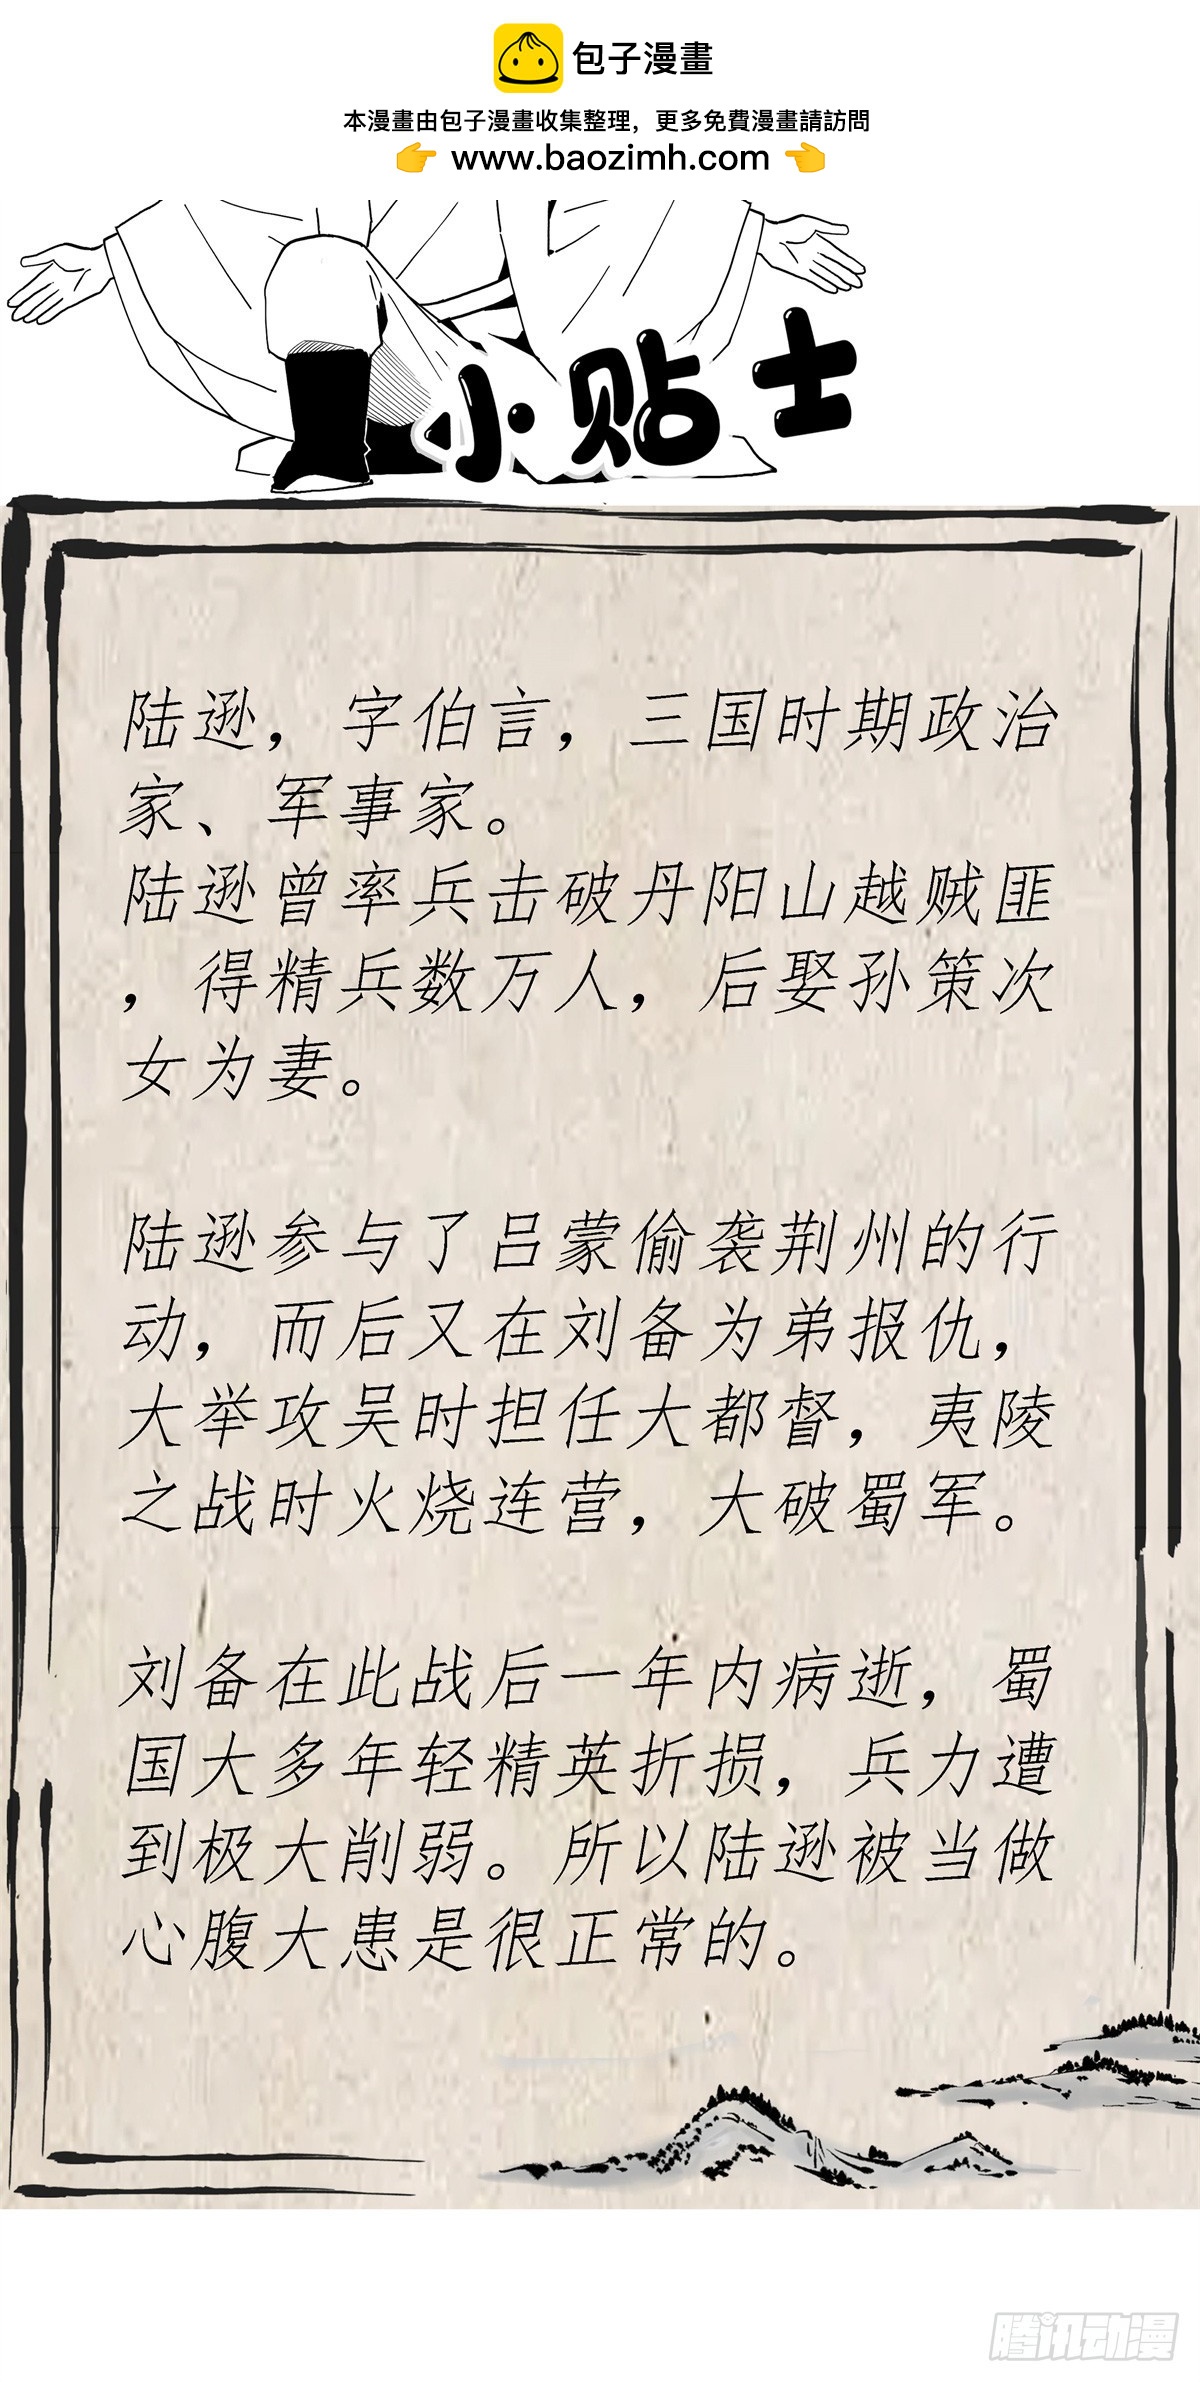 包子漫畫
本漫畫由包子漫畫收集整理，更多免費漫畫請訪問
www.baozimh.com
小贴士
陆逊，字伯言，三国时期政治
家、军事家。
陆逊曾率兵击破丹阳山越贼匪
，得精兵数万人，后娶孙策次
女为妻。
陆逊参与了吕蒙偷袭荆州的行
动，而后又在刘备为弟报仇，
大举攻吴时担任大都督，夷陵
之战时火烧连营，大破蜀军。
刘备在此战后一年内病逝，蜀
国大多年轻精英折损，兵力遭
到极大削弱。所以陆逊被当做
心腹大患是很正常的。
腾讯动漫